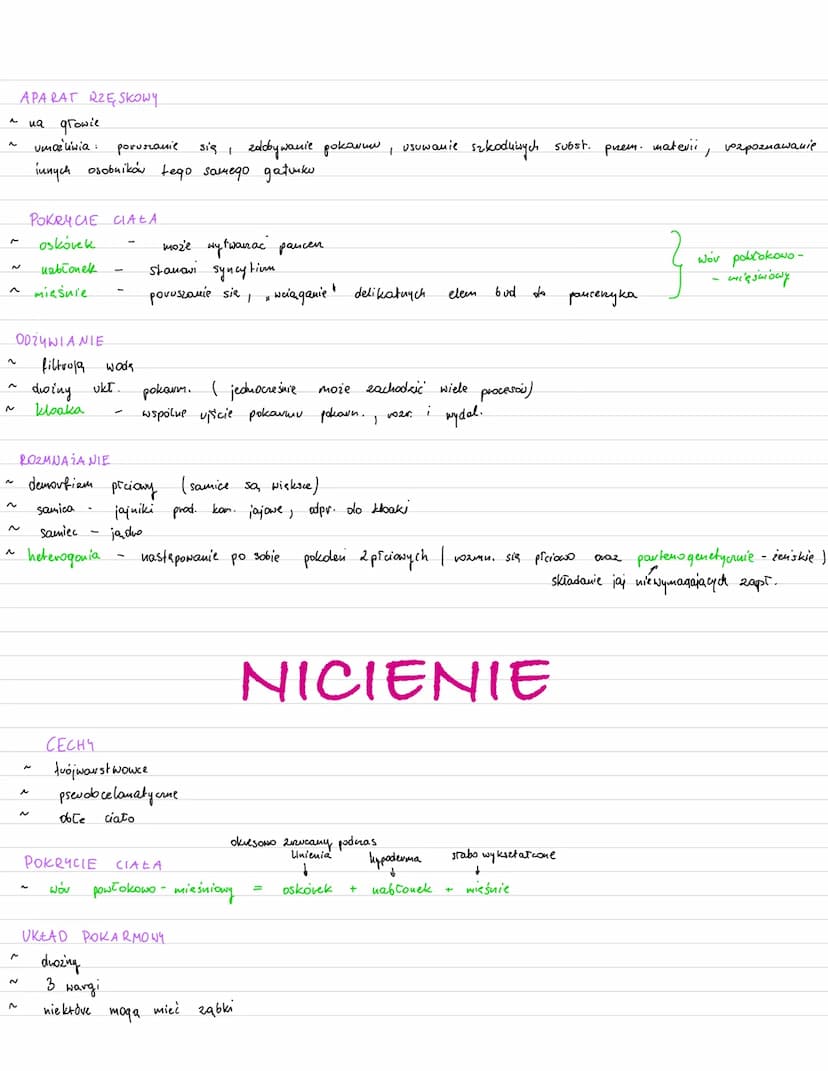 APARAT RZĘSKOWY
~ na głowie
~ umożliwia: poruszanie się, zdobywanie pokarmu, usuwanie szkodliwych subst. przem. materii, rozpoznawanie
innych osobników tego samego gatunku
POKRYCIE CIAŁA
~ oskórek - może wytwarzać pancerz
~ nabłonek - stanowi syncytium
~ mięśnie - poruszanie się, „wciąganie" delikatnych elem bud do pancerzyka
wór powłokowo-
- mięśniowy
ODŻYWIANIE
~ filtrują wodę
~ drożny ukł. pokarm. (jednocześnie może zachodzić wiele procesów)
~ kloaka - wspólne ujście pokarmu pokarm., rozr. i wydal.
ROZMNAŻANIE
~ demorfizm płciowy (samice są większe)
~ samica - jajniki prod. kom. jajowe, odpr. do kloaki
~ samiec - jądro
~ heterogonia - następowanie po sobie pokoleń 2 płciowych (rozmn. się płciowo oraz partenogenetycznie - żeńskie)
składanie jaj niewymagających zapł.
NICIENIE
CECHY
~ trójwarstwowce
~ pseudocelomatyczne
~ obłe ciało
okresowo zrzucany podczas
linienia hypoderma słabo wykształcone
POKRYCIE CIAŁA
~ wór powłokowo-mięśniowy = oskórek + nabłonek + mięśnie
UKŁAD POKARMOWY
~ drożny
~ 3 wargi
~ niektóre mogą mieć ząbki